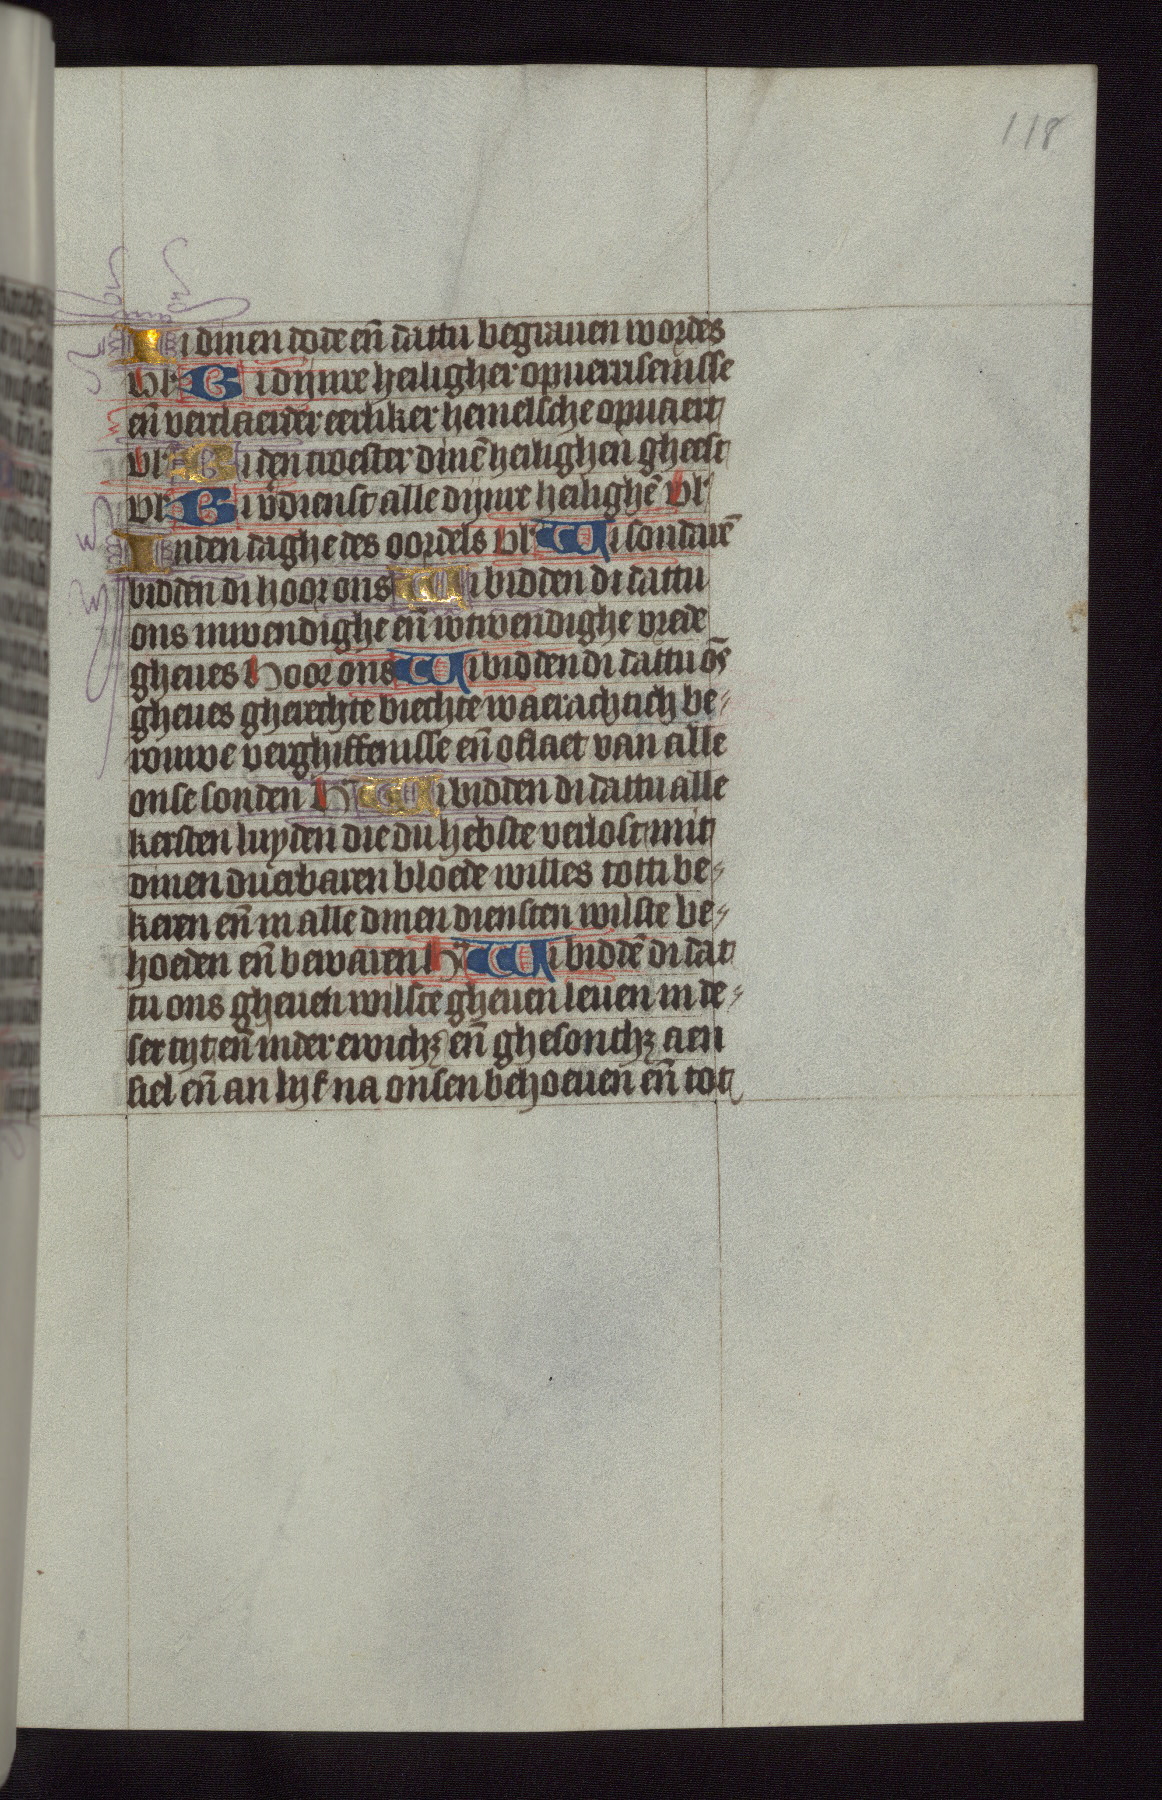 118
Bi dinen dode en̄ dattu begrauen wordes
vl' Bi dijnre heiligher opuerrisenisse
en̄ verclaerder eerliker hemelsche opuaert
vl' Bi den troester dinē heilighen gheest
vl' Bi v̄dienst alle dijnre heilighē vl'
Inden daghe des oordels vl' Wi sondarē
bidden di hoor ons Wi bidden di dattu
ons inwendighe en̄ wtwendighe vrede
gheues Hoor ons Wi bidden di dattu ōs
gheues gherechte biechte waerachtich be⸗
rouwe verghiffenisse en̄ oflaet van alle
onse sonden H Wi bidden di dattu alle
kersten luyden die du hebste verlost mit
dinen duerbaren bloede willes totti be⸗
keren en̄ in alle dinen diensten wilste be⸗
hoeden en̄ bewaren H Wi biddē di dat
tu ons gheuen wilste gheuen leuen in de⸗
ser tijt en̄ inder ewichꝫ en̄ ghesonthꝫ aen
siel en̄ an lijf na onsen behoeuen en̄ tot